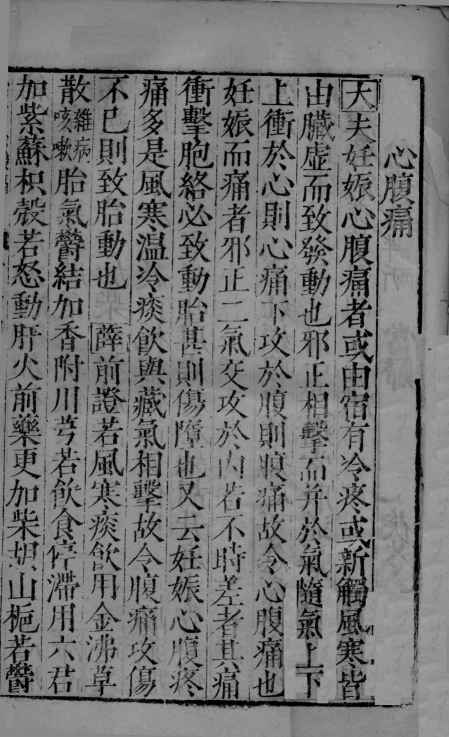 心腹痛
大夫妊娠心腹痛者或由宿有冷疼或新觸風寒皆
由臟虛而致發動也邪正相擊而并於氣隨氣上下
上衝於心則心痛下攻於腹則腹痛故令心腹痛也
妊娠而痛者邪正二氣交攻於内若不時差者其痛
衝擊胞絡必致動胎甚則傷墮也又云妊娠心腹疼
痛多是風寒温冷痰飲與臟氣相擊故令腹痛攻傷
不已則致胎動也 薛前證若風寒痰飲用金沸草
散雜病咳嗽胎氣鬱結加香附川芎若飲食停滯用六君
加紫蘇枳殼若怒動肝火前藥更加柴胡山梔若鬱